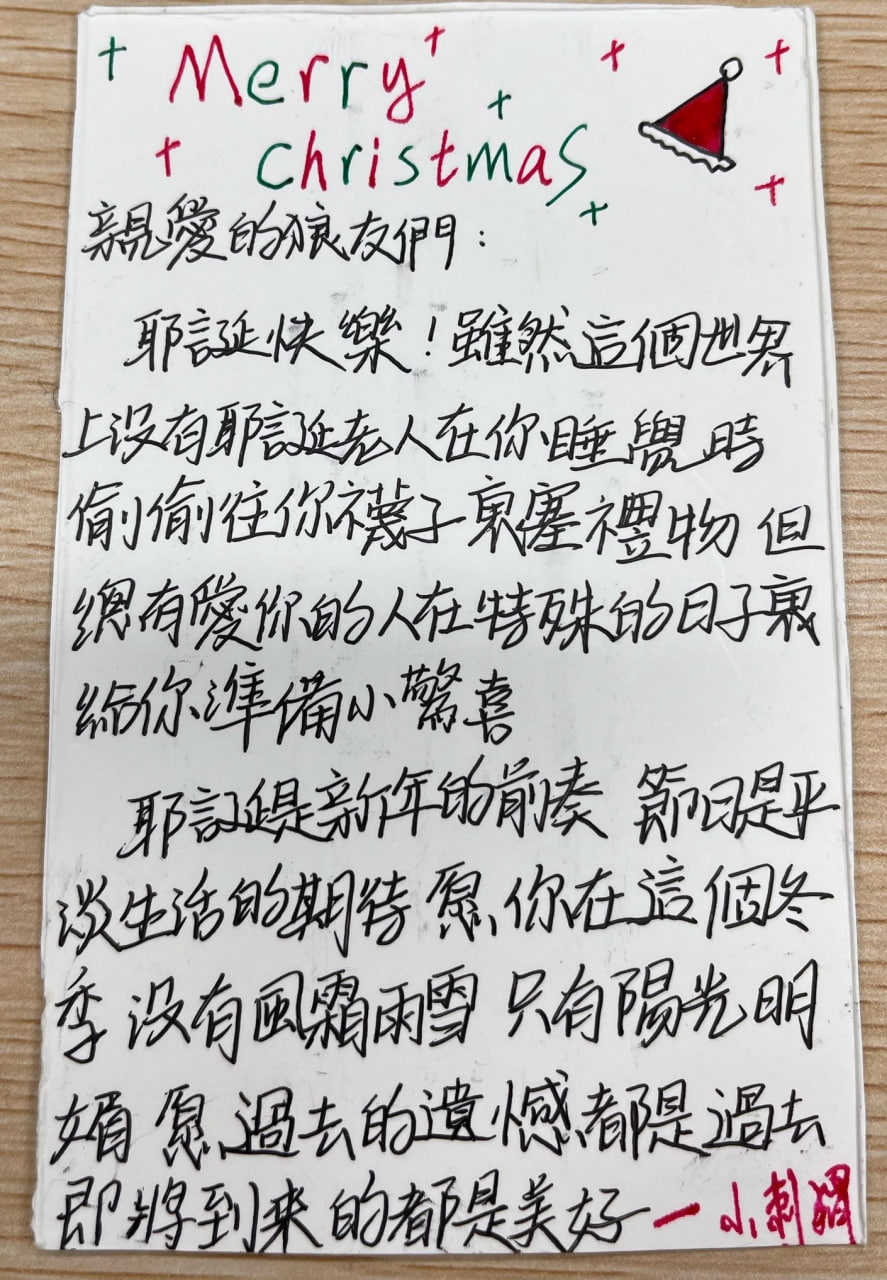 Merry
christmas
親愛的狼友們：
耶誕快樂！雖然這個世界
上没有耶誕老人在你睡覺時
偷偷往你襪子裏塞禮物 但
總有愛你的人在特殊的日子裏
給你準備小驚喜
耶誕是新年的前奏 節日是平
淡生活的期待 愿你在這個冬
季 没有風霜雨雪 只有陽光明
媚 愿過去的遺憾都是過去
即將到来的都是美好 一 小刺猬